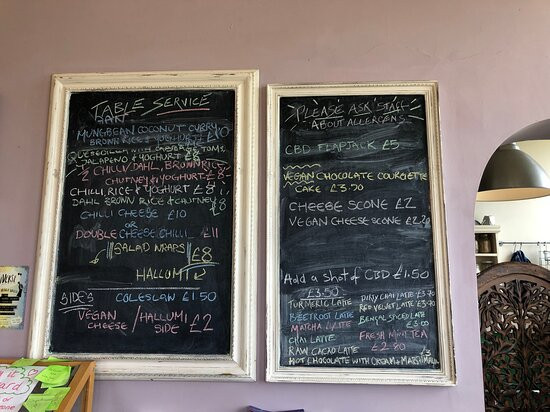 TABLE SERVICE
MUNGBEAN COCONUT CURRY
BROWN RICE & YOGHURT £10
QUESADILLA WITH CHEESE & TOMS
JALAPENO & YOGHURT £8
½ CHILLI/DAHL, BROWN RICE
CHUTNEY & YOGHURT £8
CHILLI, RICE & YOGHURT £8
DAHL BROWN RICE & CHUTNEY £8
CHILLI CHEESE £10
OR
DOUBLE CHEESE CHILLI £11
SALAD WRAPS £8
HALLUMI
SIDES COLESLAW £1.50
VEGAN CHEESE / HALLUMI SIDE £2
PLEASE ASK STAFF
ABOUT ALLERGENS
CBD FLAPJACK £5
VEGAN CHOCOLATE COURGETTE
CAKE £3.50
CHEESE SCONE £2
VEGAN CHEESE SCONE £2.20
Add a shot of CBD £1.50
£3.50
TURMERIC LATTE
BEETROOT LATTE
MATCHA LATTE
CHAI LATTE
RAW CACAO LATTE
DIRTY CHAI LATTE £3.70
RED VELVET LATTE £3.70
BENGAL SPICED LATTE
£3.00
FRESH MINT TEA
£2.80
HOT CHOCOLATE WITH CREAM & MARSHMALLOW £3